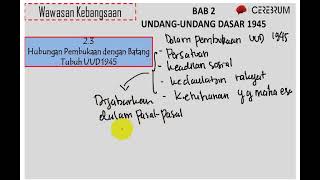 Wawasan Kebangsaan
BAB 2
UNDANG-UNDANG DASAR 1945
CEREBRUM
2.3
Hubungan Pembukaan dengan Batang
Tubuh UUD1945
Dalam pembukaan UUD 1945
- Persatuan
- keadilan sosial
- kedaulatan rakyat
- Ketuhanan yg maha esa
Dijabarkan
dalam pasal-pasal